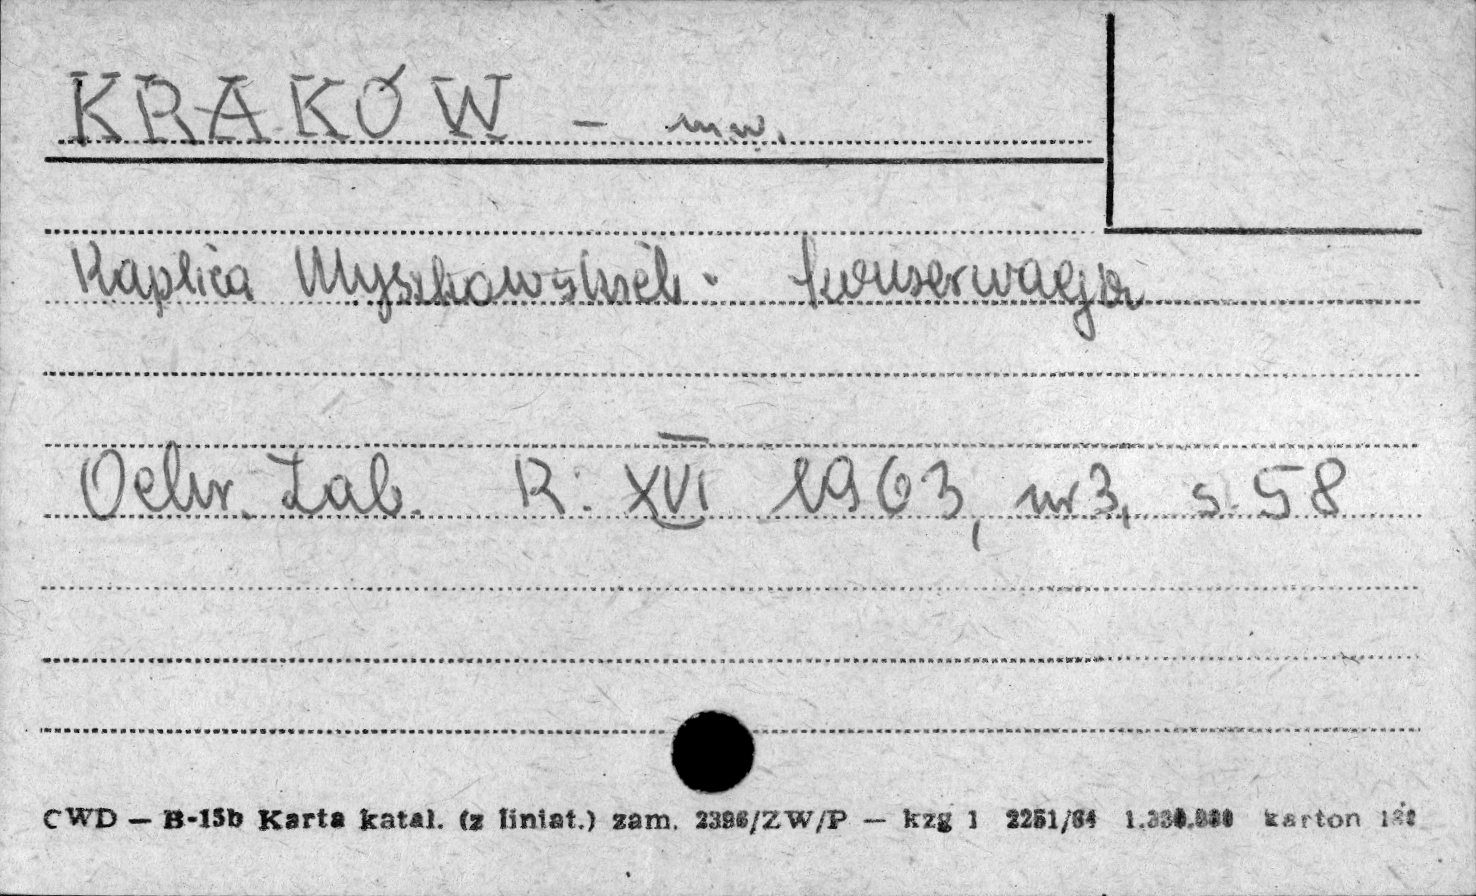 KRAKÓW - m.w.
Kaplica Myszkowskich - konserwacja
Ochr. Zab. R. XVI 1963, nr 3, s. 58
CWD — B-15b Karta katal. (z liniat.) zam. 2396/ZW/P — kzg 1 2251/64 karton